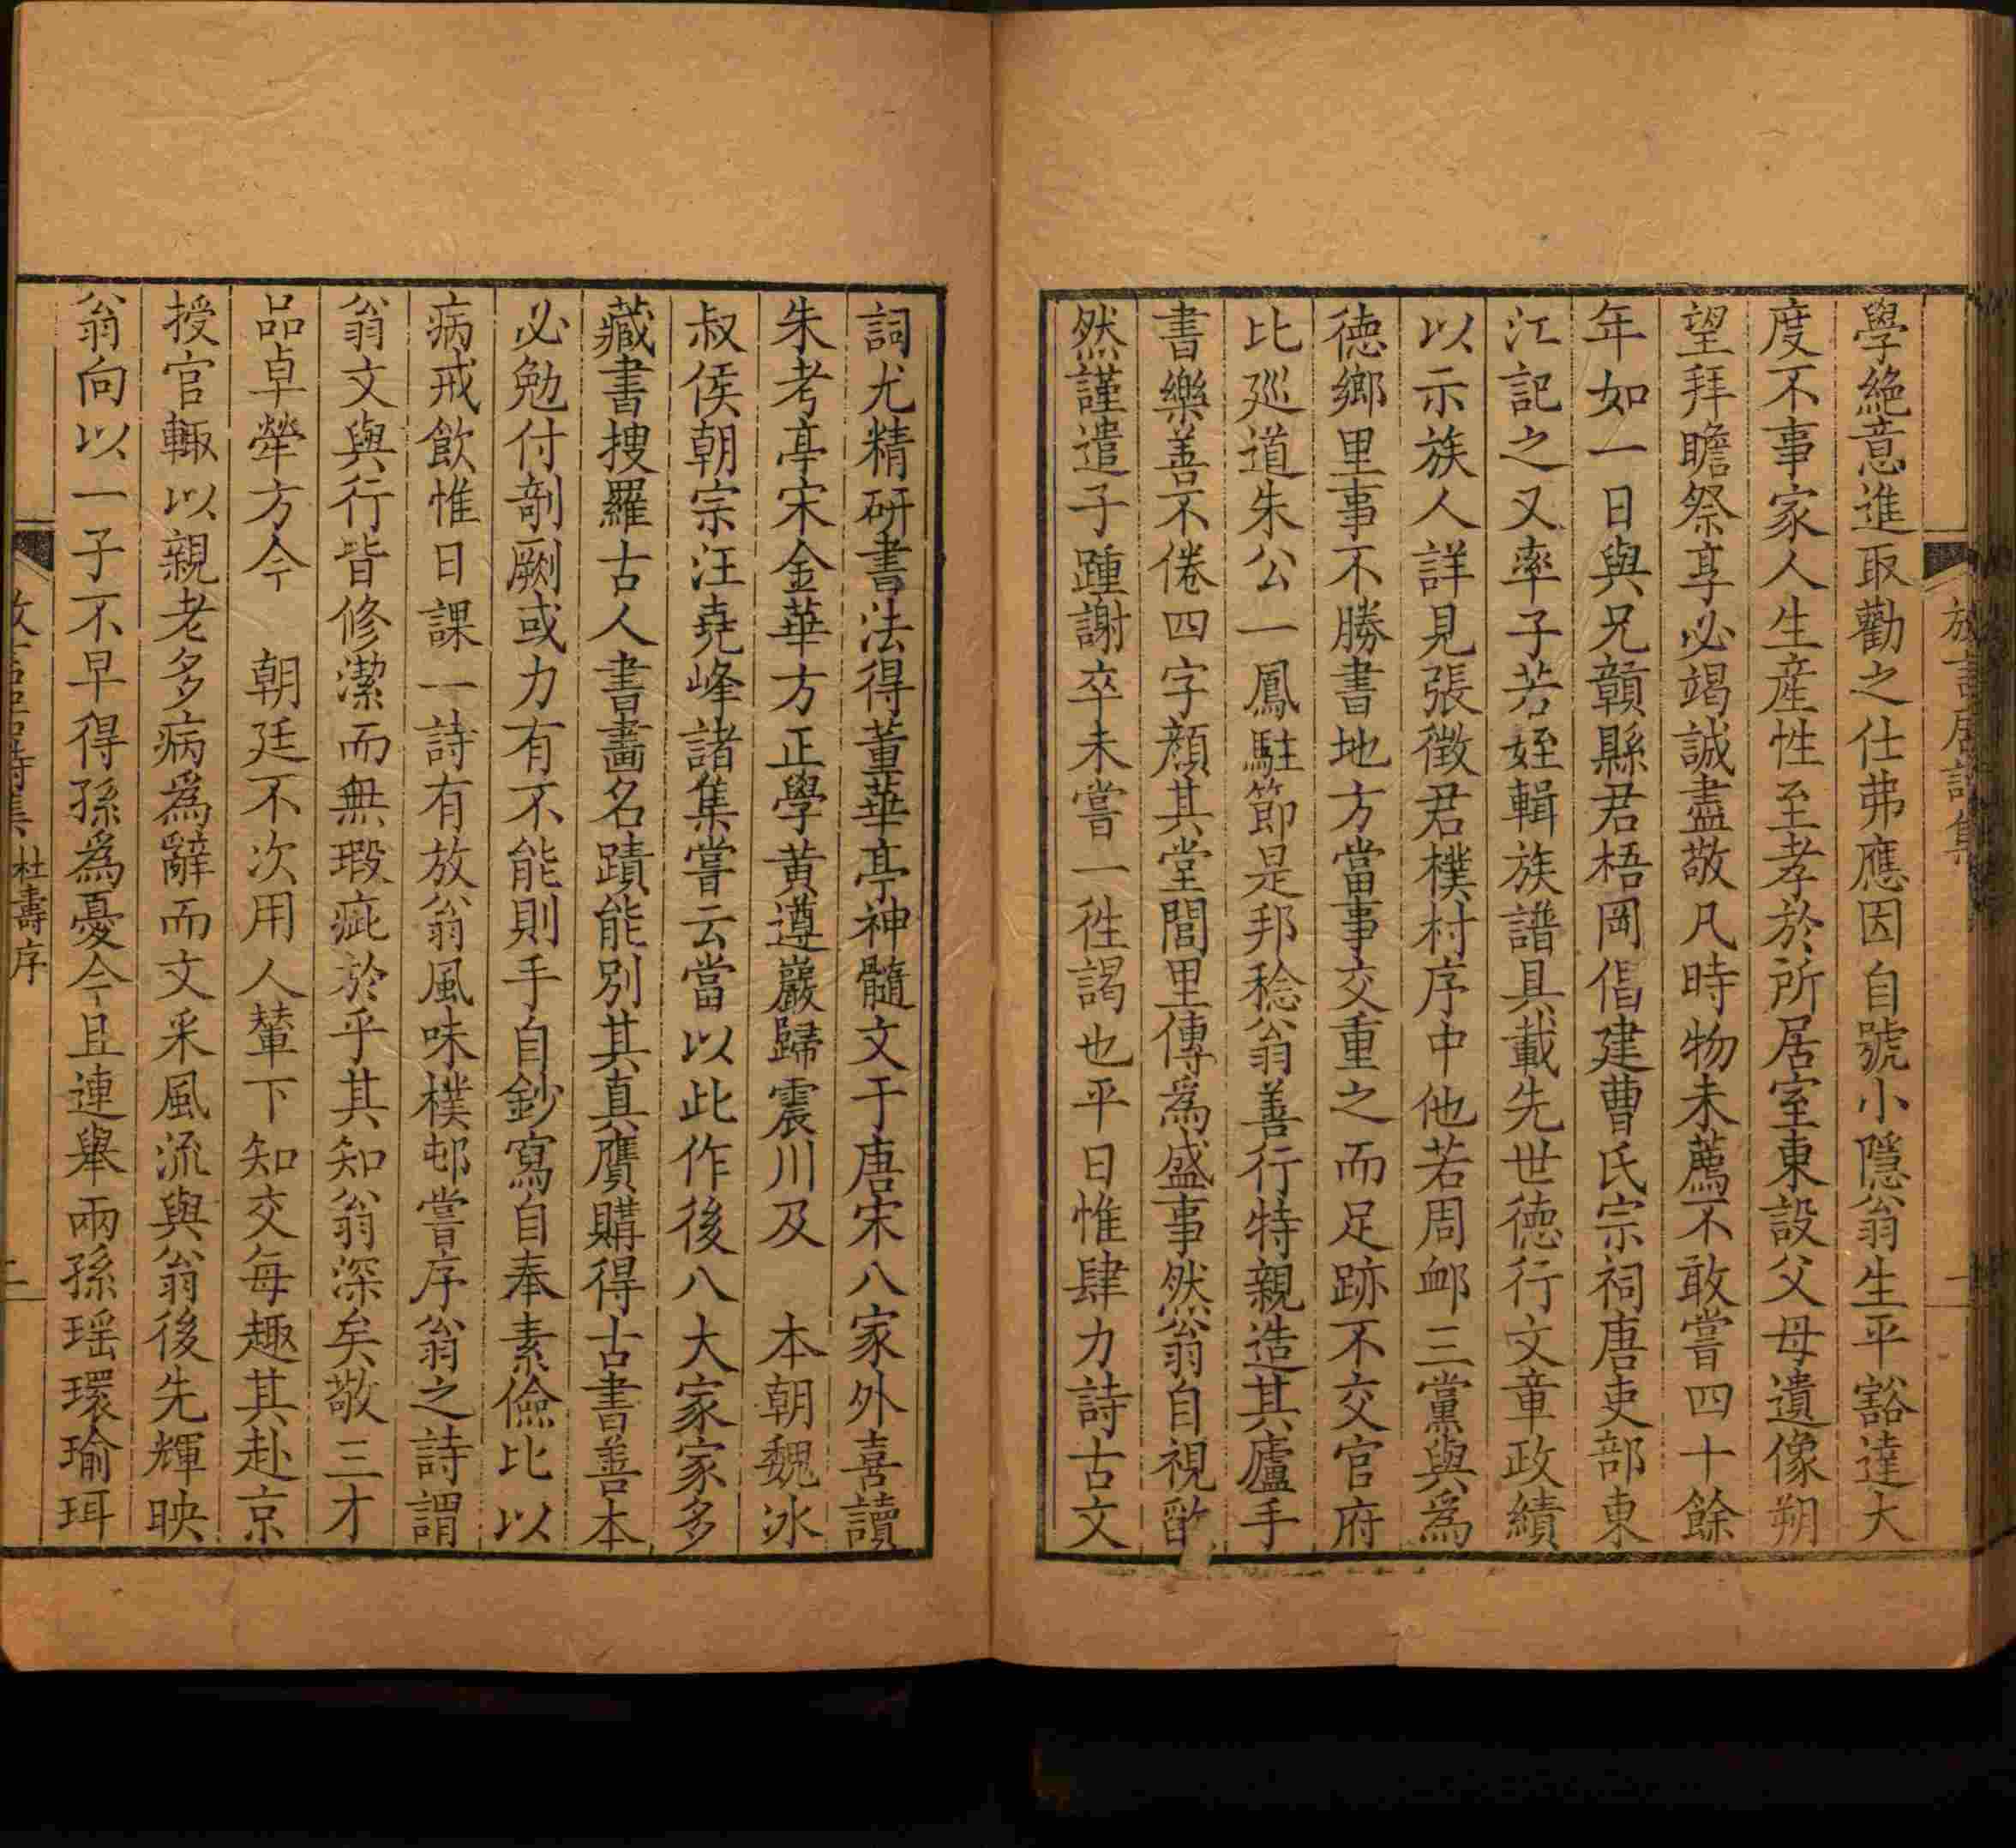 學絶意進取勸之仕弗應因自號小隱翁生平豁達大
度不事家人生産性至孝於所居室東設父母遺像朔
望拜瞻祭享必竭誠盡敬凡時物未薦不敢嘗四十餘
年如一日與兄贛縣君梧岡倡建曹氏宗祠唐吏部東
江記之又率子若姪輯族譜具載先世徳行文章政績
以示族人詳見張徴君樸村序中他若周衈三黨與爲
徳鄉里事不勝書地方當事交重之而足跡不交官府
比廵道朱公一鳳駐節是邦稔翁善行特親造其廬手
書樂善不倦四字顔其堂閭里傳爲盛事然翁自視歉
然謹遣子踵謝卒未嘗一徃謁也平日惟肆力詩古文
詞尤精研書法得董華亭神髓文于唐宋八家外喜讀
朱考亭宋金華方正學黄遵巖歸震川及　本朝魏冰
叔侯朝宗汪堯峰諸集嘗云當以此作後八大家家多
藏書搜羅古人書畵名蹟能别其真贋購得古書善本
必勉付剞劂或力有不能則手自鈔寫自奉素儉比以
病戒飲惟日課一詩有放翁風味樸邨嘗序翁之詩謂
翁文與行皆修潔而無瑕疵於乎其知翁深矣敬三才
品卓犖方今　朝廷不次用人輦下知交每趣其赴京
授官輙以親老多病爲辭而文采風流與翁後先輝映
翁向以一子不早得孫爲憂今且連舉兩孫瑶環瑜珥
放言居詩集
一
杜壽序
二